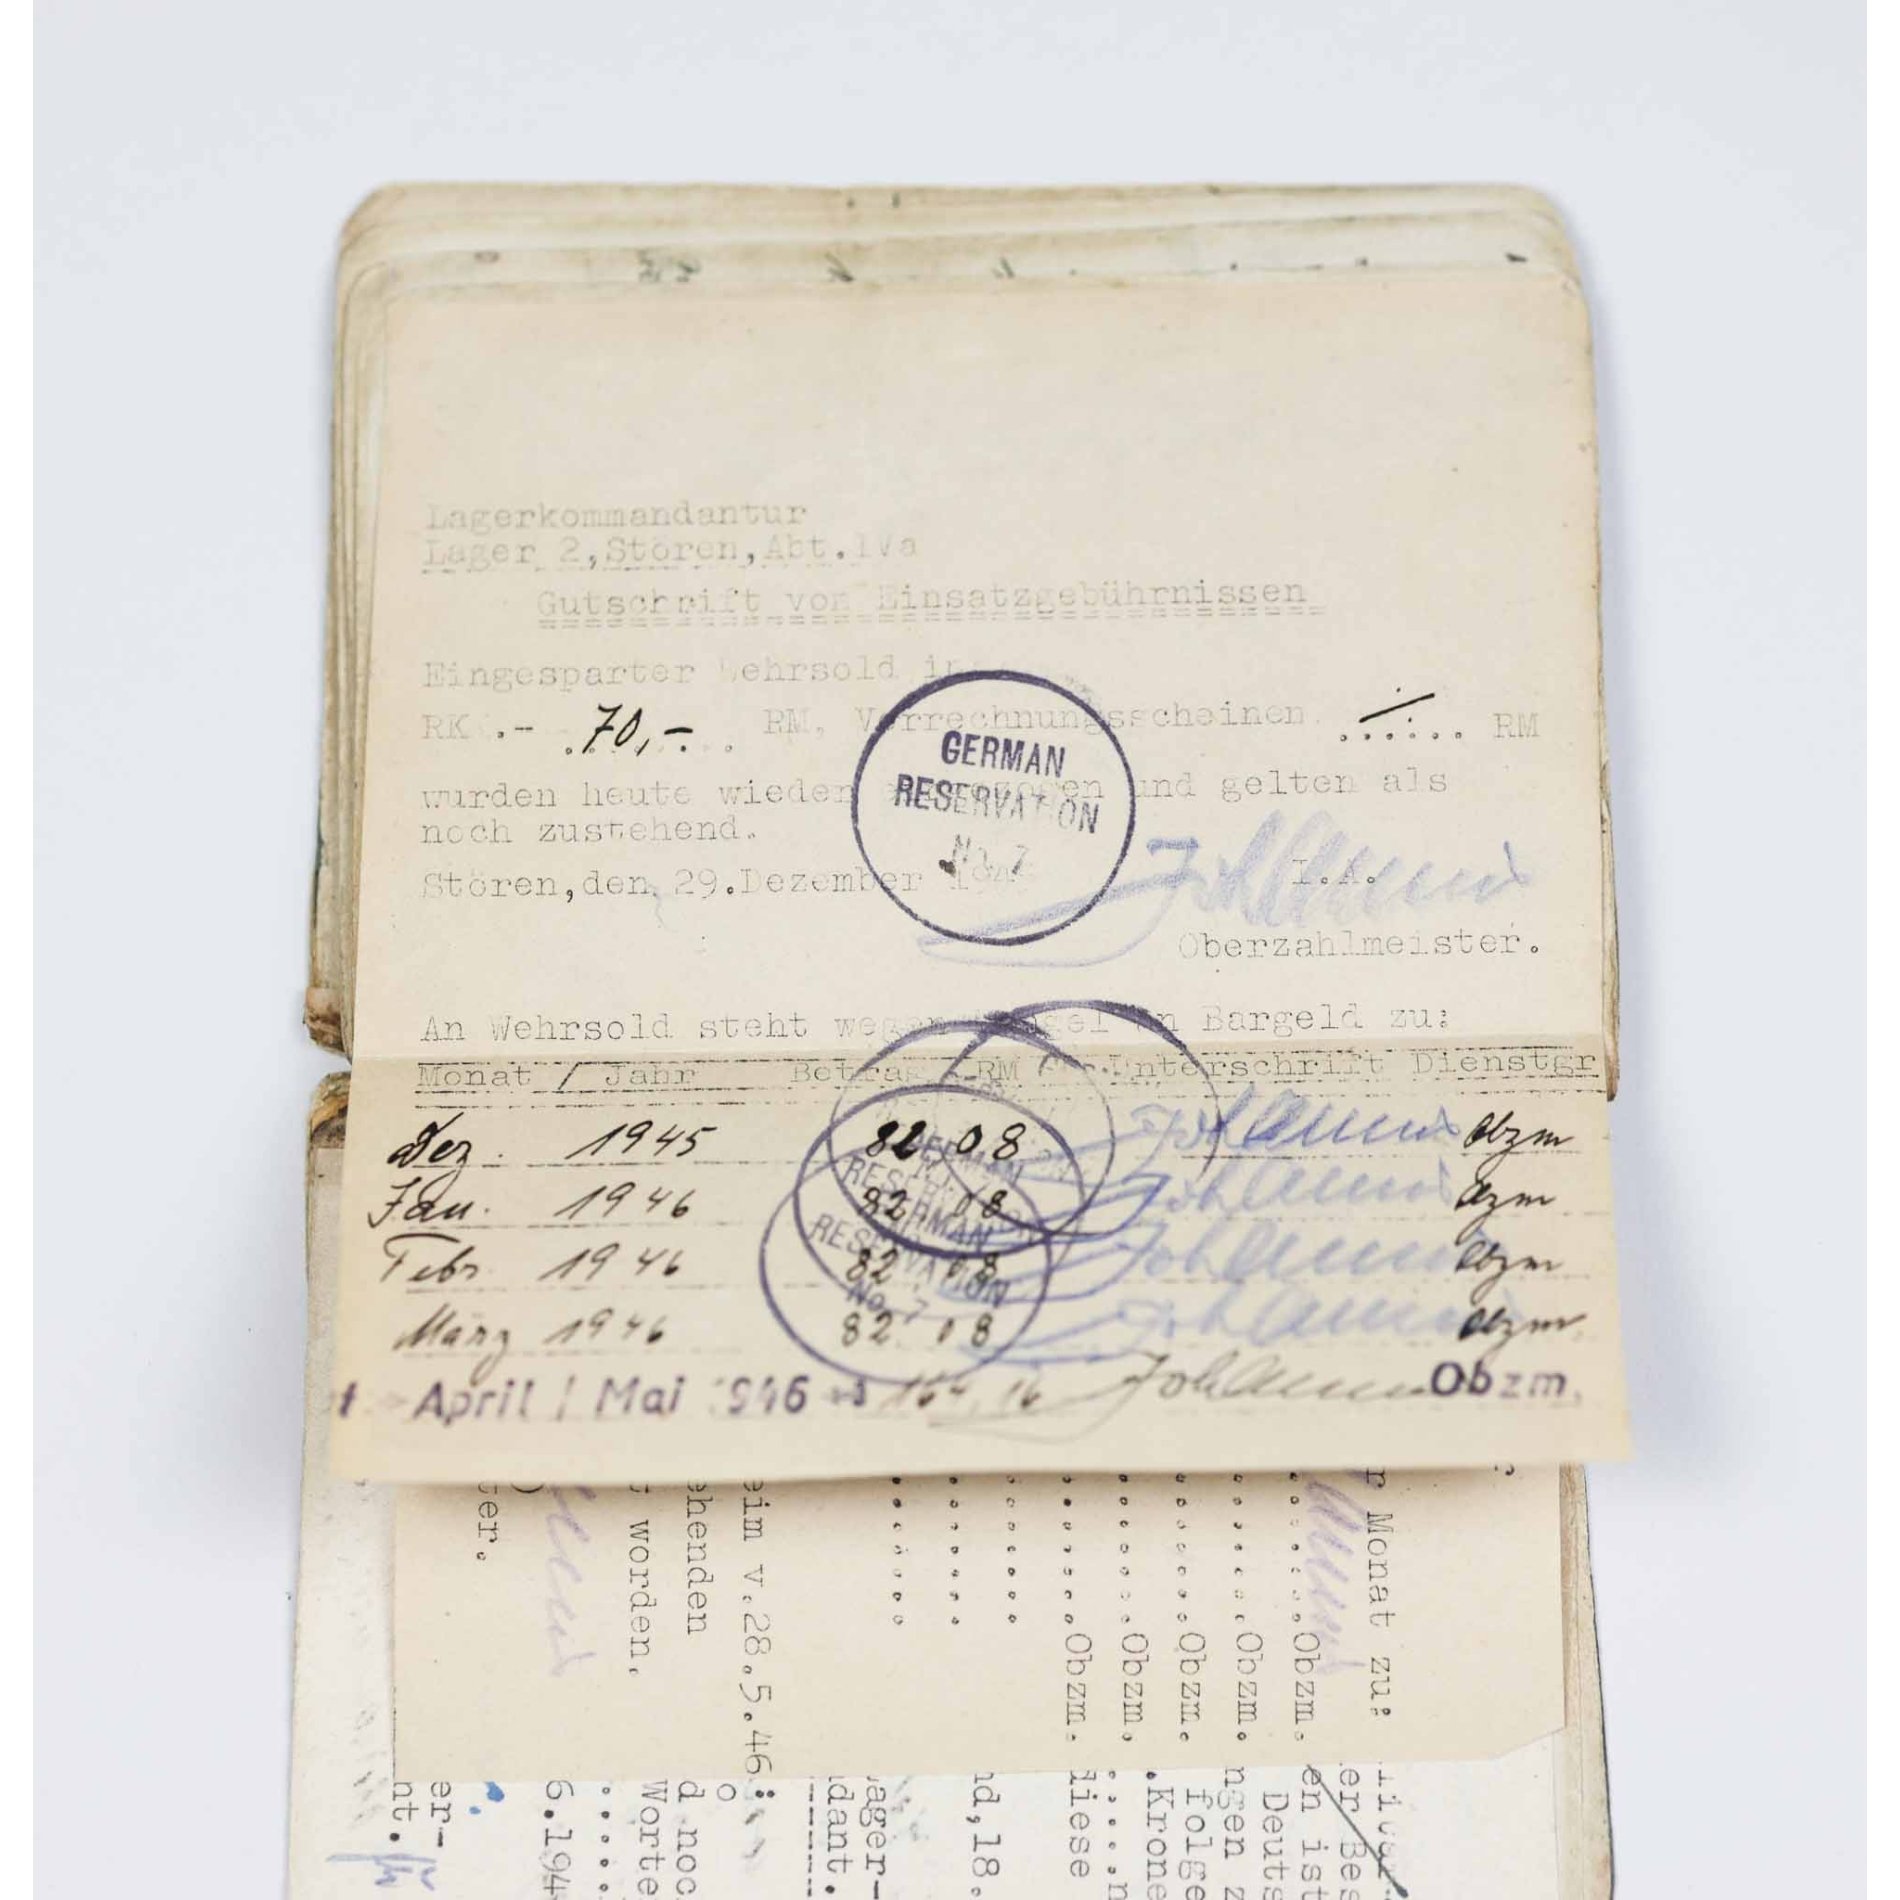 Lagerkommandantur
Lager 2,Stören,Abt.IVa
Gutschrift von Einsatzgebührnissen
Eingesparter Wehrsold in
RK .- 70,- RM, Verrechnungsscheinen ...... RM
wurden heute wieder und gelten als
noch zustehend.
Stören,den 29.Dezember
I.A.
Oberzahlmeister.
GERMAN
RESERVATION
No. 7
An Wehrsold steht wegen Mangel an Bargeld zu:
Monat / Jahr Betrag RM Unterschrift Dienstgr
Dez. 1945 82 08 Obzm
Jan. 1946 82 08 Obzm
Febr. 1946 82 08 Obzm
März 1946 82 08 Obzm
GERMAN
RESERVATION
No. 7
April / Mai 1946 164,16 Obzm.
r Monat zu:
......Obzm.
......Obzm.
......Obzm.
......Obzm.
......Obzm.
eim v.28.5.46:
ehenden
worden.
ter.
er Bes
en ist
Deuts
ngen z
folge
.Krone
diese
nd,18.
ager-
dant.
d noc
Worte
6.194
er-
nt.